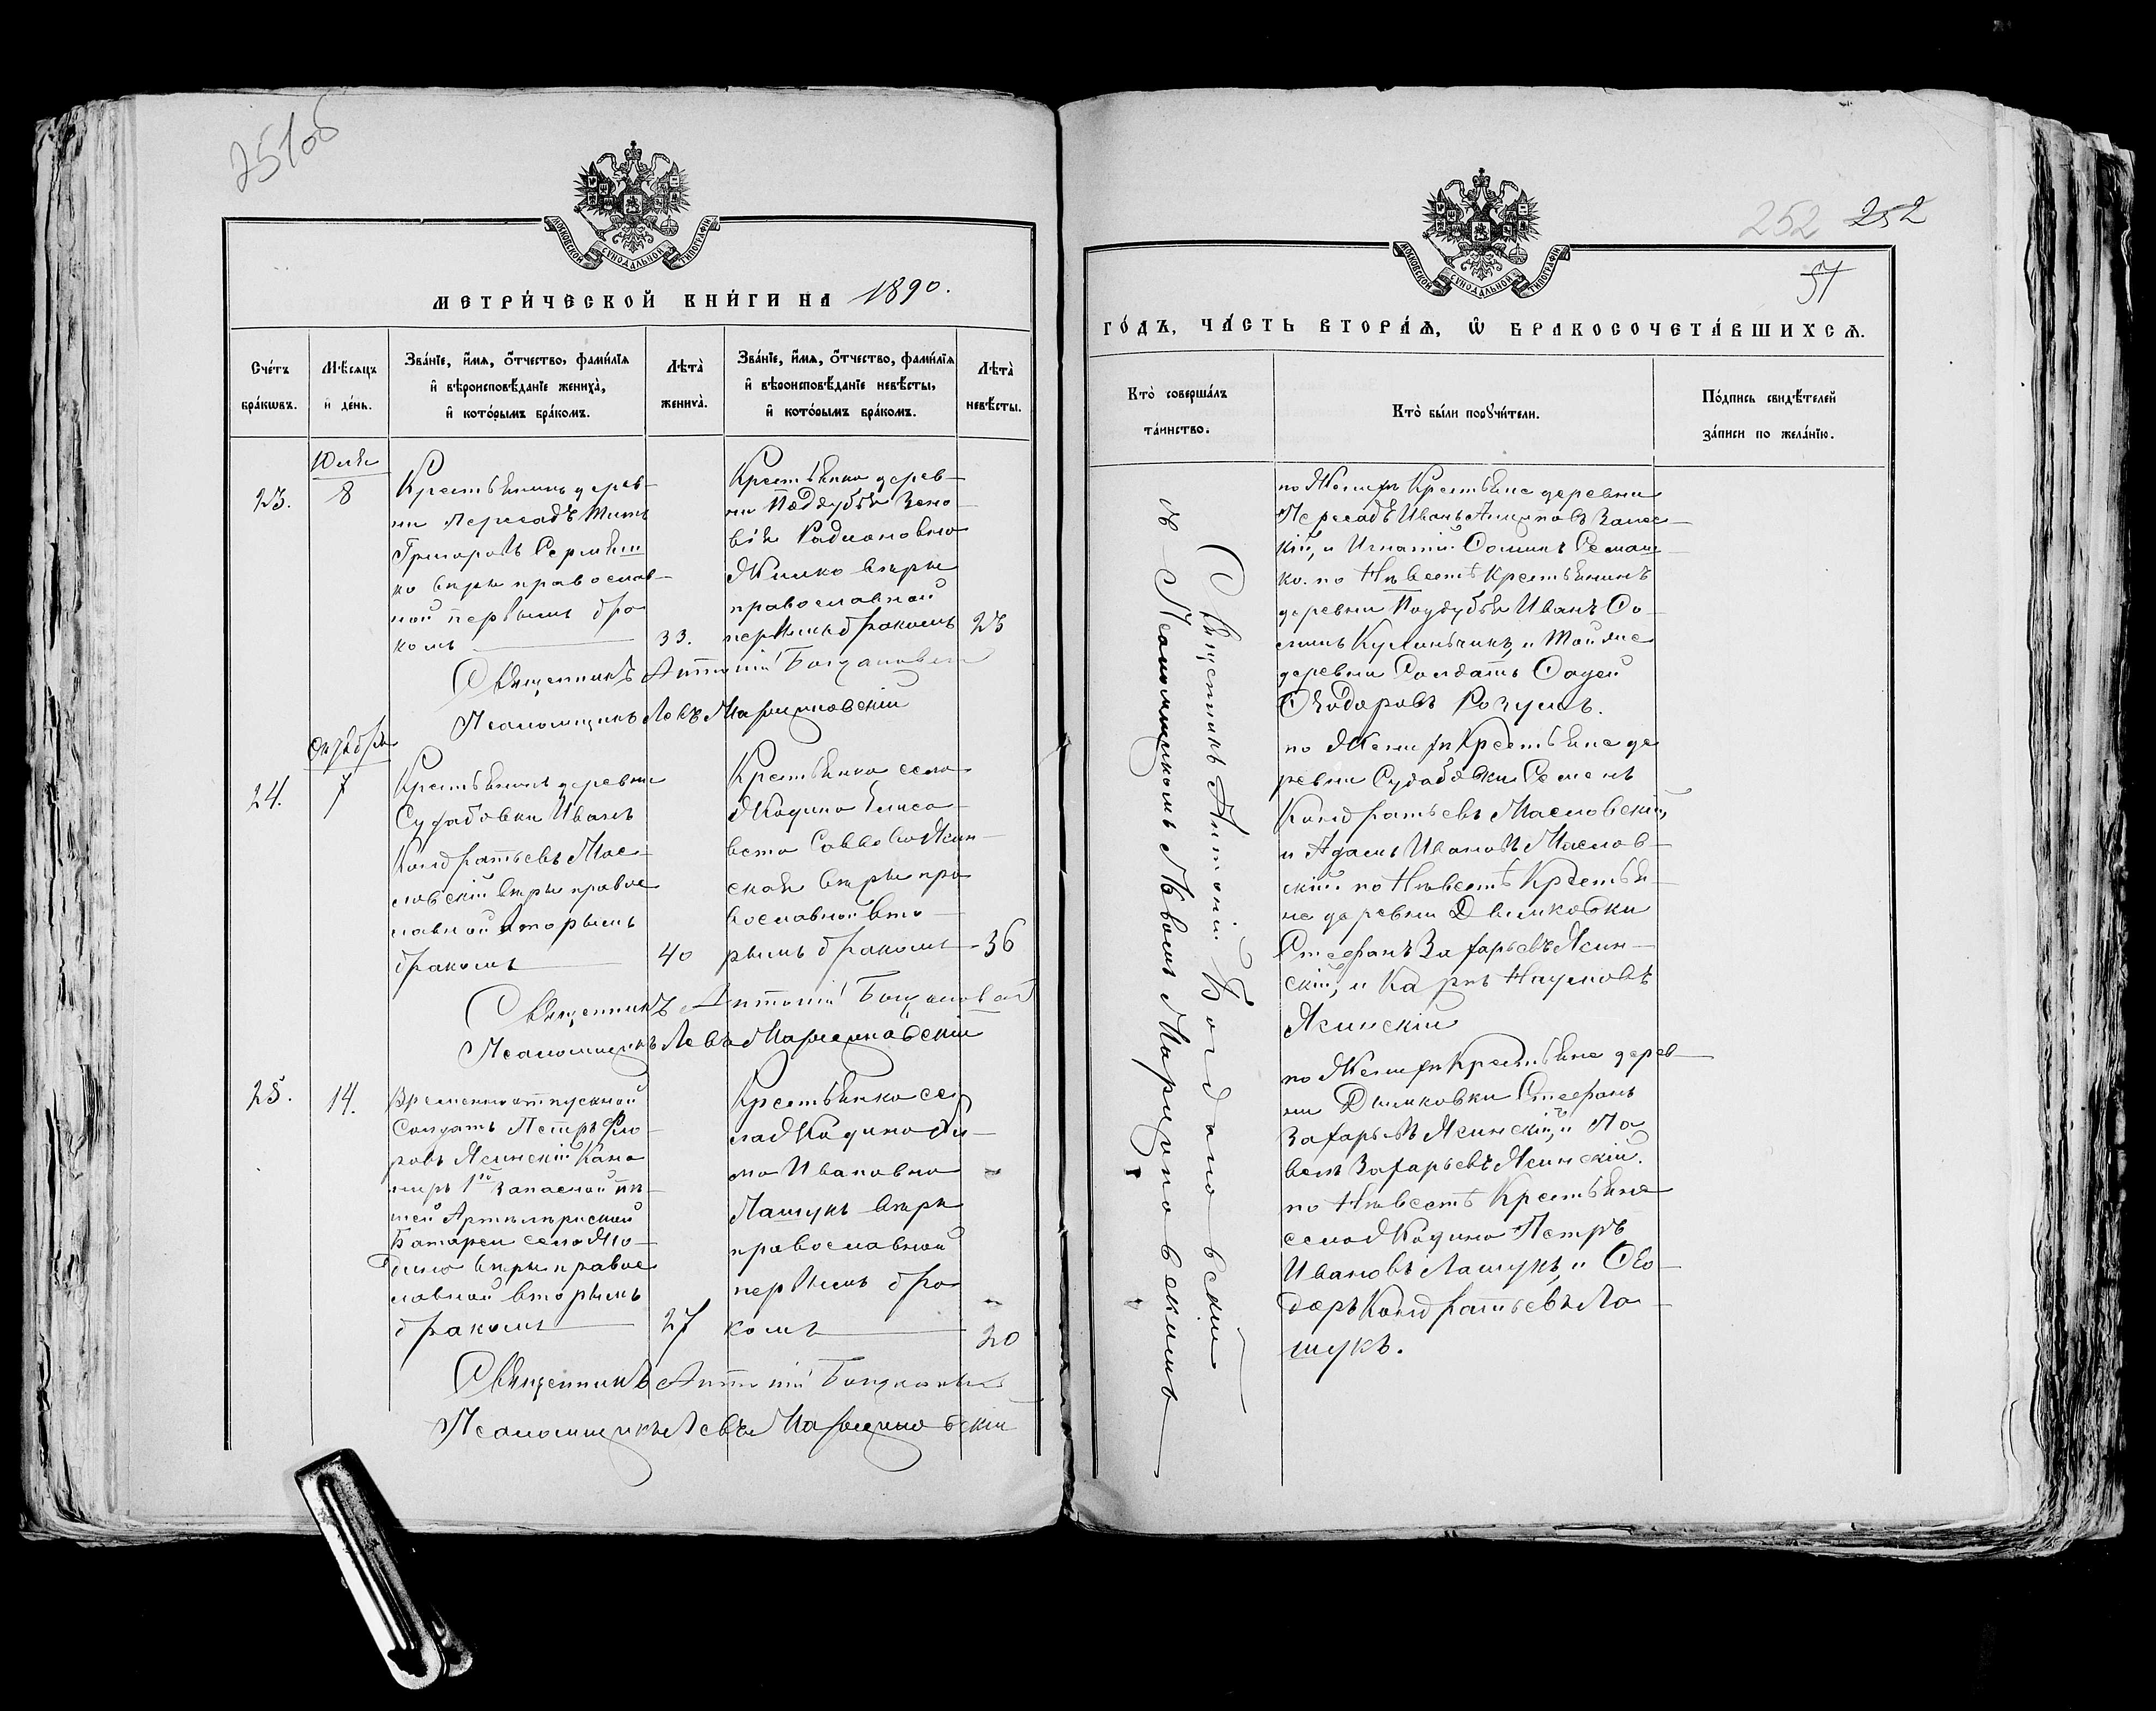 251об
МОСКОВСКОЙ СѴНОДАЛЬНОЙ ТИПОГРАФІИ
МЕТРИ́ЧЕСКОЙ КНИ́ГИ НА 1890.
Сче́тъ бра́кωвъ.
Мѣ́сяцъ и҆ де́нь.
Зва́нїе, и҆́мя, о҆́тчество, фами́лїя
и҆ вѣроисповѣ́данїе жениха̀,
и҆ кото́рымъ бра́комъ.
Лѣта̀ жениха̀.
Зва́нїе, и҆́мя, о҆́тчество, фами́лїя
и҆ вѣроисповѣ́данїе невѣ́сты,
и҆ кото́рымъ бра́комъ.
Лѣта̀ невѣ́сты.
23.
Юля
8
Крестьянинъ дерев-
ни Пересадъ Титъ
Григоровъ
вѣры православ-
ной первымъ бра
комъ
33.
Крестьянка дерев-
ни Поддубья Зено
вія Радионовна
вѣры
православной
первымъ бракомъ
23
Священникъ Антоній Богдановскій
Псаломщикъ Левъ Марциновскій
24.
Октября
7
Крестьянинъ деревни
Судобовки Иванъ
Кондратьевъ Мас-
ловскій вѣры правос
лавной вторымъ
бракомъ
40
Крестьянка села
Жодина Елиса-
вета Саввова Ясин-
ская вѣры пра
вославной вто-
рымъ бракомъ
36
Священникъ Антоній Богдановскій
Псаломщикъ Левъ Марциновскій
25.
14.
Временноотпускной
Солдатъ Петръ Фло-
ровъ Ясинскій Кано
ниръ 1й Запасной пѣ-
шей Артилерийской
Батареи села Жо-
дина вѣры правос
лавной вторымъ
бракомъ
27
Крестьянка се
ла Жодина Ан-
на Ивановна
Лашукъ вѣры
православной
первымъ бра
комъ
20
Священникъ Антоній Богдановскій
Псаломщикъ Левъ Марциновскій
252 252
51
МОСКОВСКОЙ СѴНОДАЛЬНОЙ ТИПОГРАФІИ
ГО́ДЪ, ЧА́СТЬ ВТОРА́Я, Ѡ҆ БРАКОСОЧЕТА́ВШИХСЯ.
Кто̀ соверша́лъ та́инство.
Кто̀ бы́ли порꙋчи́тели.
По́дпись свидѣ́телей
за́писи по жела́нїю.
Священникъ Антоній Богдановскій
съ Псаломщикомъ Львомъ Марциновскимъ
по Женихѣ Крестьяне деревни
Пересадъ Иванъ
кій, и Игнатій
ко. по Невѣстѣ Крестьянинъ
деревни Поддубья Иванъ Фо-
минъ и той же
деревни Солдатъ
Ѳеодоровъ Розумъ.
по Женихѣ Крестьяне де
ревни Судобовки Семенъ
Кондратьевъ Масловскій,
и Адамъ Ивановъ Маслов-
скій. по Невѣстѣ Крестья-
не деревни Димковки
Стефанъ Захарьевъ Ясин-
скій, и Карпъ Наумовъ
Ясинскій
по Женихѣ Крестьяне дерев-
ни Димковки Стефанъ
Захарьевъ Ясинскій, и Па
велъ Захарьевъ Ясинскій.
по Невѣстѣ Крестьяне
села Жодина Петръ
Ивановъ Лашукъ, и Ѳео-
доръ Кондратьевъ Ла-
шукъ.